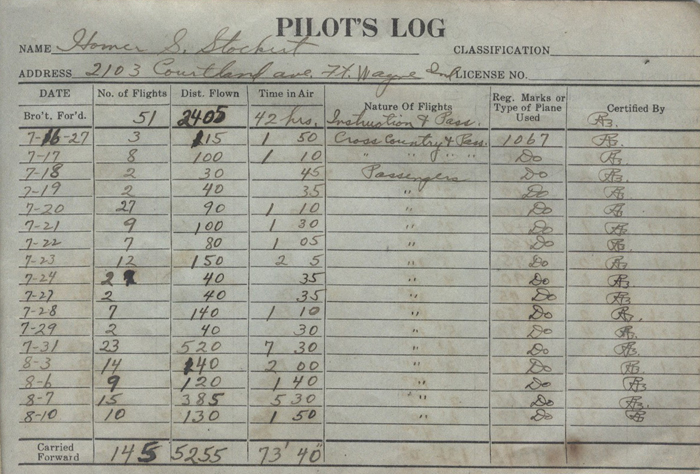 PILOT'S LOG
NAME Homer S. Stockert CLASSIFICATION
ADDRESS 2103 Courtland ave. Ft. Wayne Ind LICENSE NO.
DATE No. of Flights Dist. Flown Time in Air Nature Of Flights Reg. Marks or Type of Plane Used Certified By
Bro't. For'd. 51 2405 42 hrs. Instruction & Pass.
7-16-27 3 115 1 50 Cross Country & Pass. 1067
7-17 8 100 1 10 " " " " Do
7-18 2 30 45 Passengers Do
7-19 2 40 35 " Do
7-20 27 90 1 10 " Do
7-21 9 100 1 30 " Do
7-22 7 80 1 05 " Do
7-23 12 150 2 5 " Do
7-24 2 40 35 " Do
7-27 2 40 35 " Do
7-28 7 140 1 10 " Do
7-29 2 40 30 " Do
7-31 23 520 7 30 " Do
8-3 14 140 2 00 " Do
8-6 9 120 1 40 " Do
8-7 15 385 5 30 " Do
8-10 10 130 1 50 " Do
Carried Forward 145 5255 73' 40"